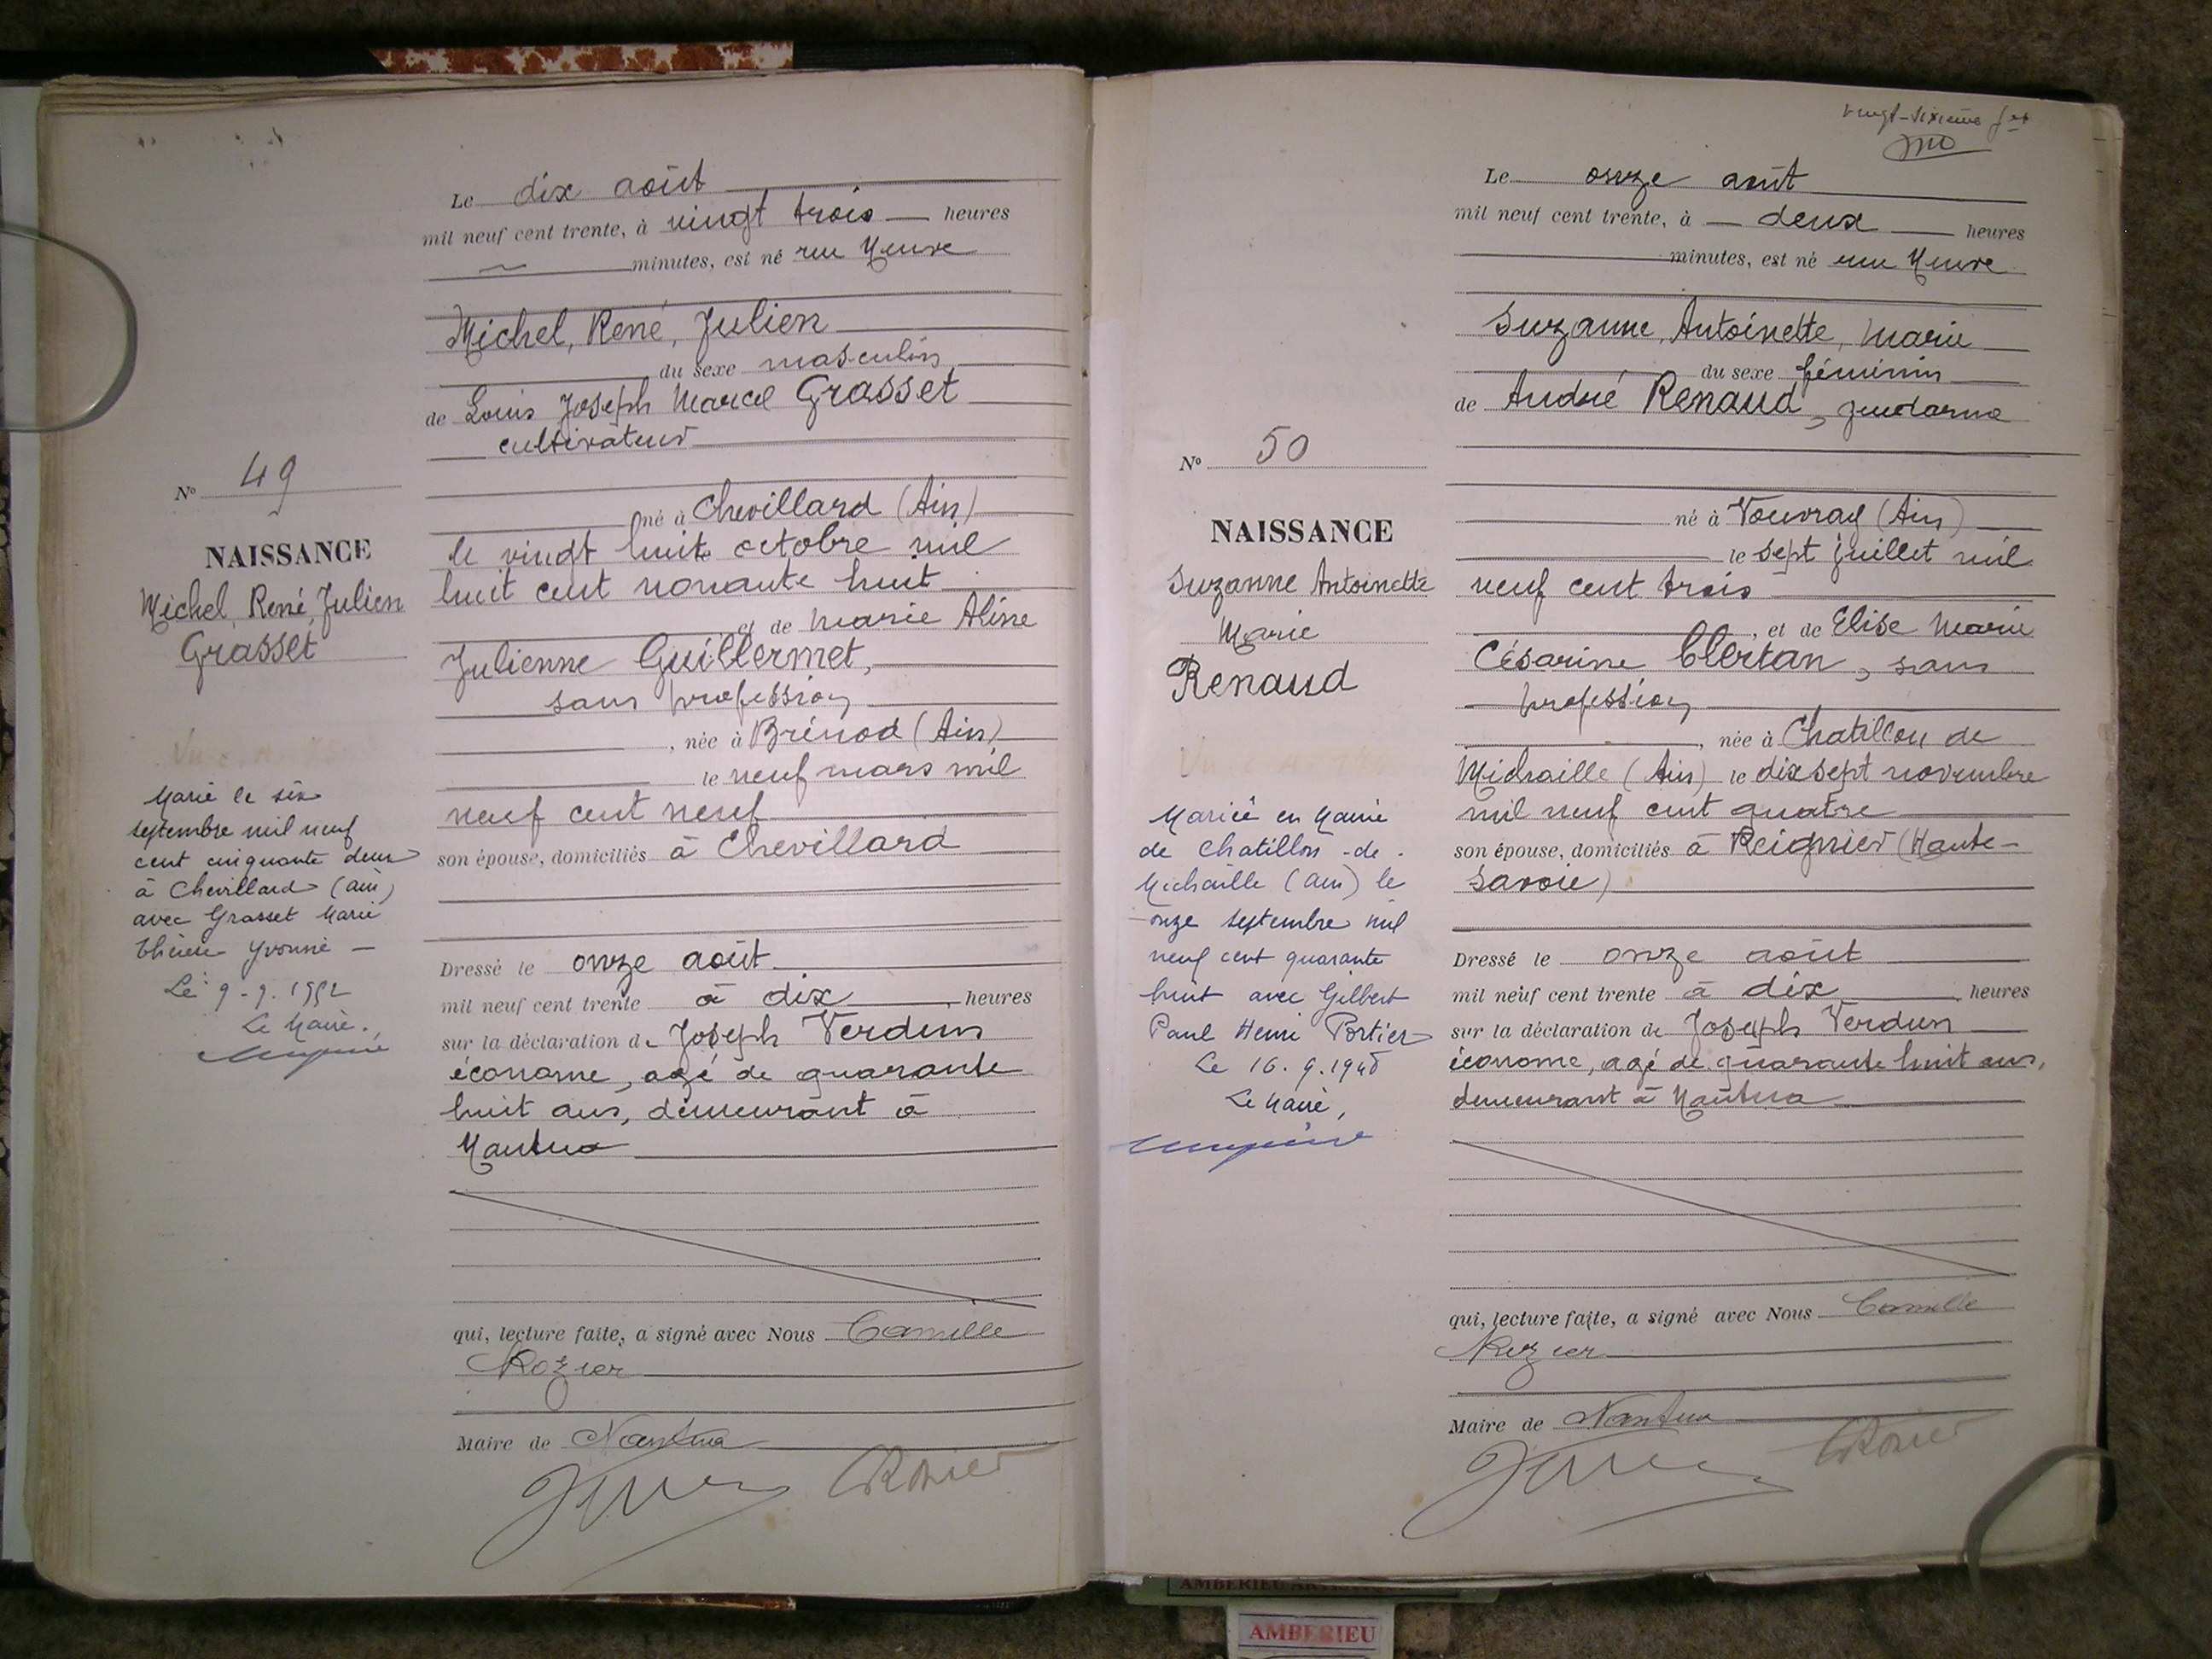 Le dix août
mil neuf cent trente, à vingt trois heures
minutes, est né rue Neuve
Michel, René, Julien
du sexe masculin
de Louis Joseph Marcel Grasset
cultivateur
né à Chevillard (Ain)
le vingt huit octobre mil
huit cent nonante huit
et de Marie Aline
Julienne Guillermet,
sans profession
, née à Brénod (Ain)
le neuf mars mil
neuf cent neuf
son épouse, domiciliés à Chevillard
Dressé le onze août
mil neuf cent trente à dix heures
sur la déclaration de Joseph Verdun
économe, agé de quarante
huit ans, demeurant à
Nantua
qui, lecture faite, a signé avec Nous Camille
Rozier
Maire de Nantua
CRozier
N° 49
NAISSANCE
Michel, René, Julien
Grasset
Marié le six
septembre mil neuf
cent cinquante deux
à Chevillard (ain)
avec Grasset Marie
Thérèse Yvonne —
Le 9-9.1952
Le Maire.,
vingt-sixième
Le onze août
mil neuf cent trente, à — deux — heures
minutes, est né rue Neuve
Suzanne, Antoinette, Marie
du sexe féminin
de André Renaud, gendarme
né à Vouvray (Ain)
le sept juillet mil
neuf cent trois
, et de Elise Marie
Césarine Clertan, sans
profession
, née à Chatillon de
Michaille (Ain) le dix sept novembre
mil neuf cent quatre
son épouse, domiciliés à Reignier (Haute-
Savoie)
Dressé le onze août
mil neuf cent trente à dix heures
sur la déclaration de Joseph Verdun
économe, agé de quarante huit ans,
demeurant à Nantua
qui, lecture faite, a signé avec Nous Camille
Rozier
Maire de Nantua
CRozier
N° 50
NAISSANCE
Suzanne Antoinette
Marie
Renaud
Mariée en Mairie
de Chatillon-de-
Michaille (ain) le
onze septembre mil
neuf cent quarante
huit avec Gilbert
Paul Henri Portier
Le 16.9.1948
Le Maire,
AMBERIEU
AMBERIEU